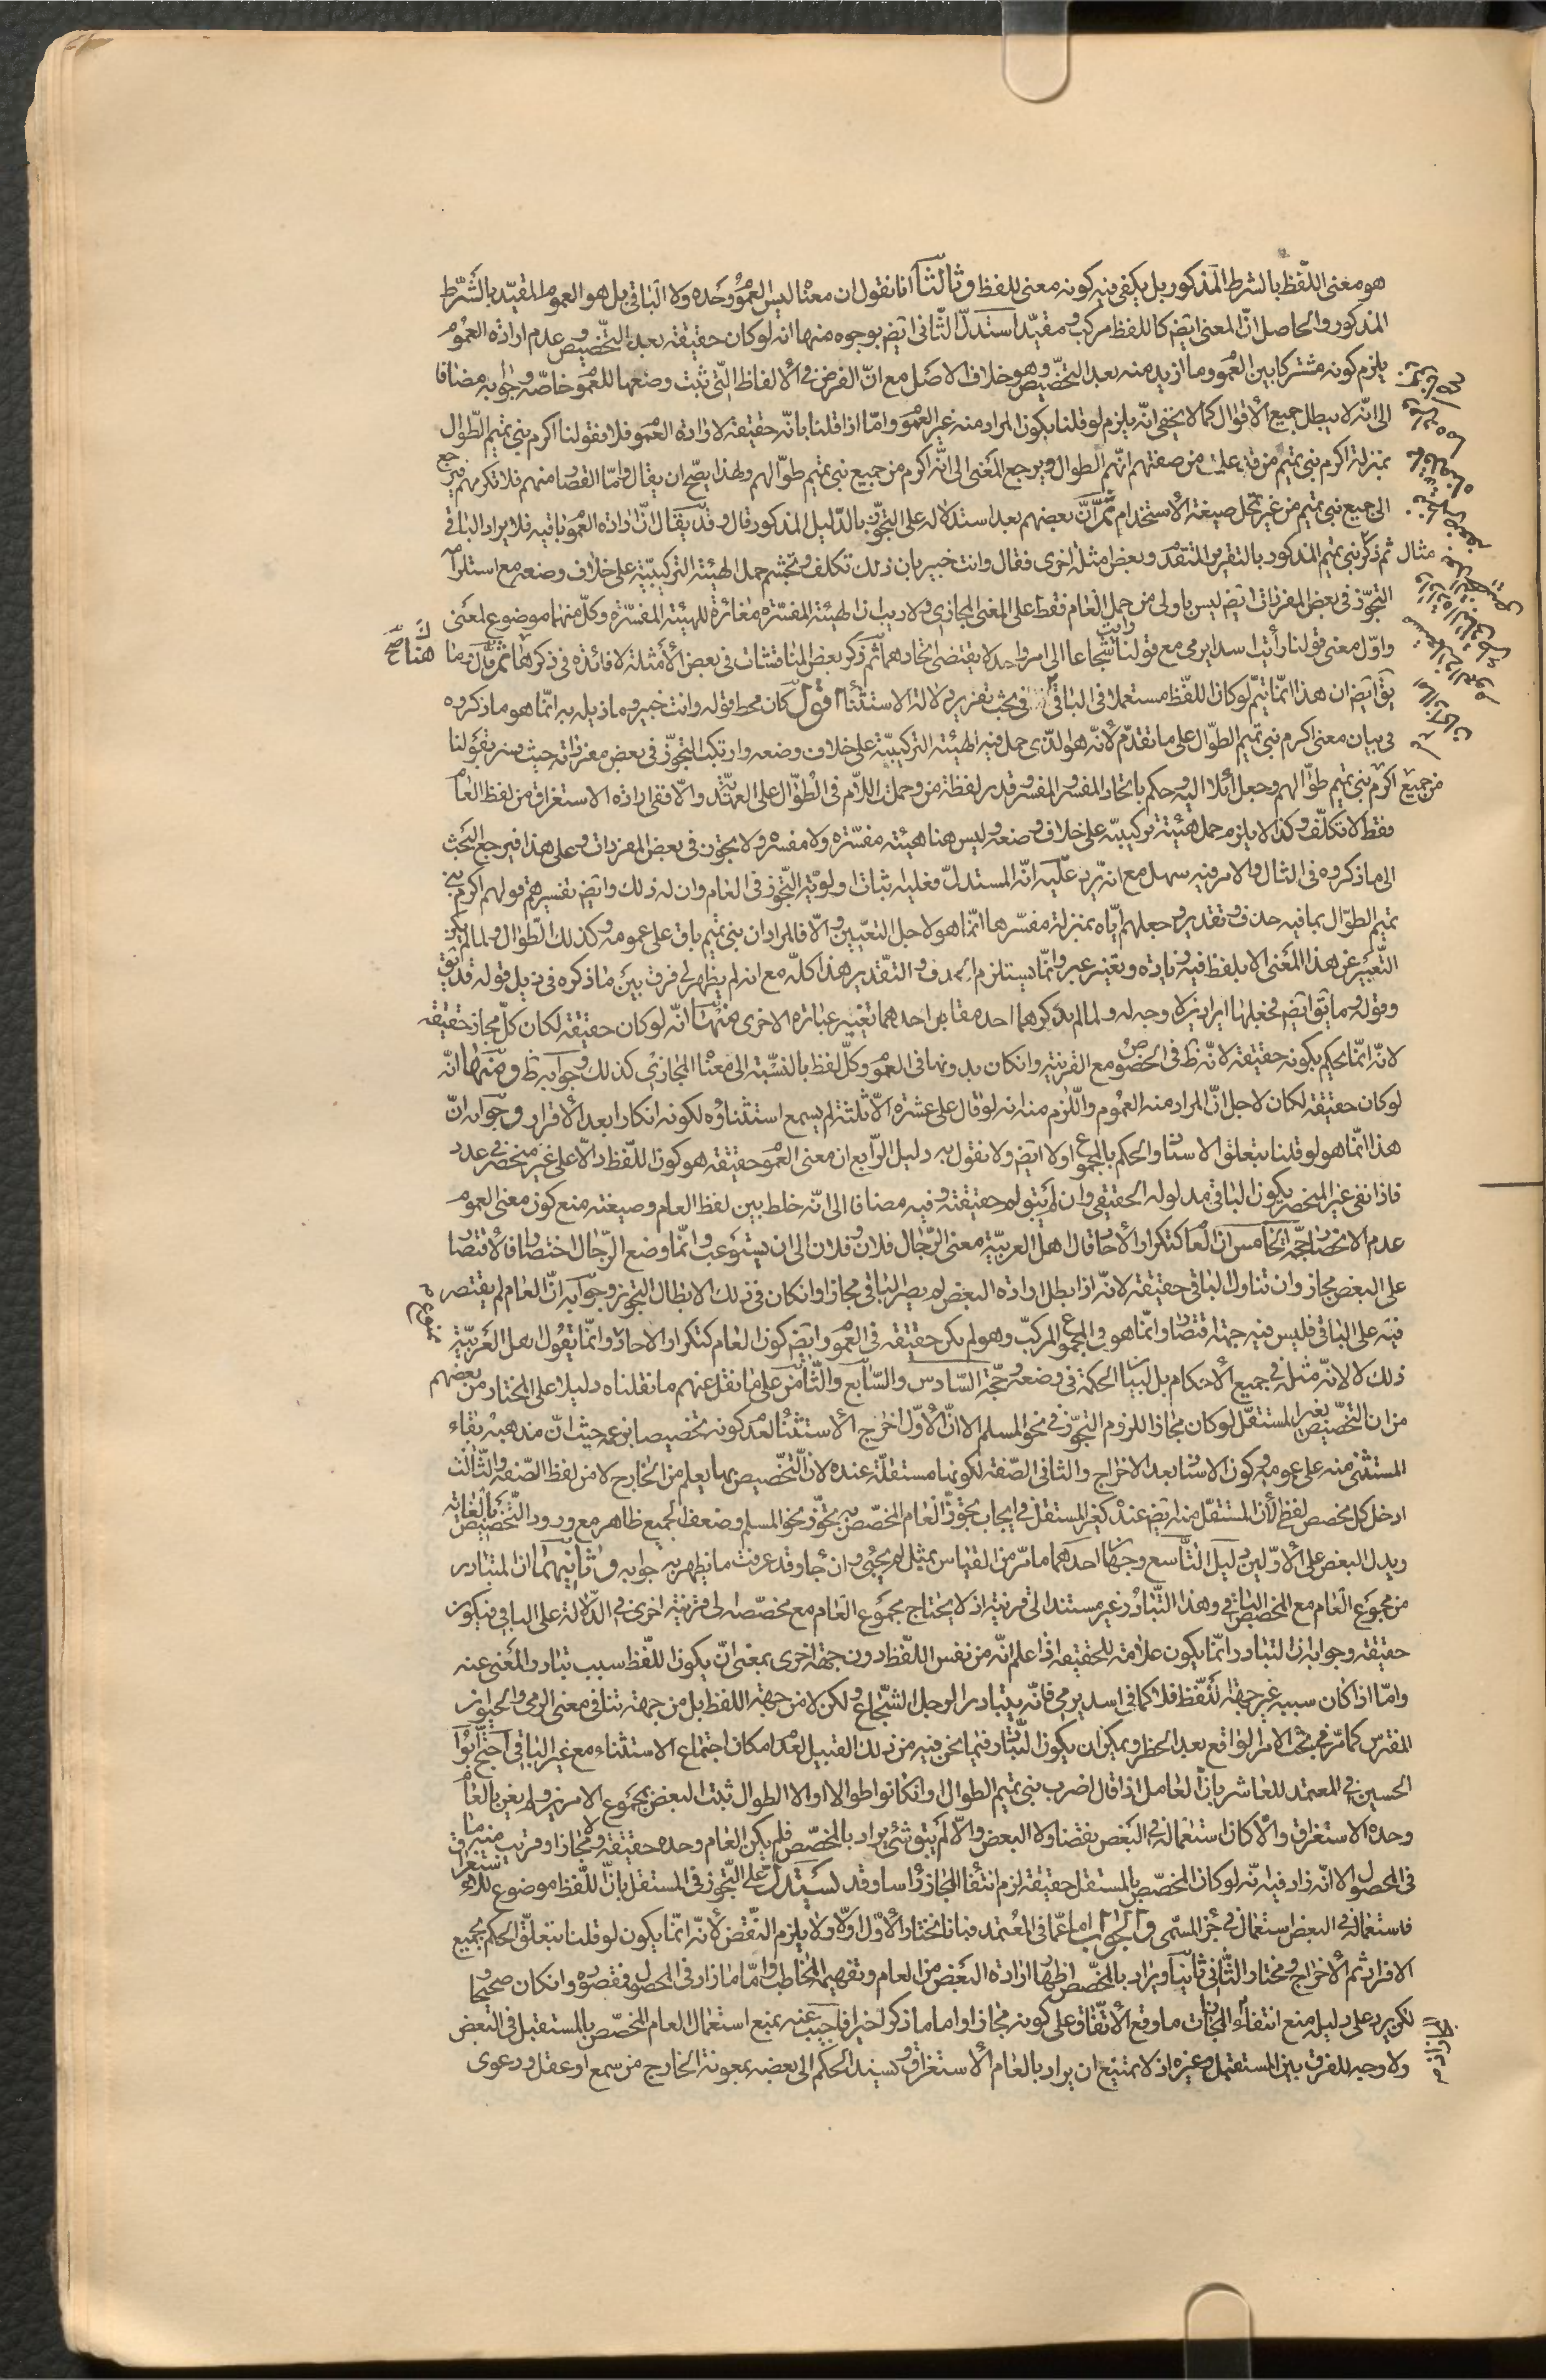 هو معنى اللّفظ بالشرط المذكور بل يكفى فيه كونه معنى للفظ وثالثا انا نقول ان معناه ليس العموم وحده ولا الباقى بل هو العموم المقيّد بالشّرط
المذكور والحاصل انّ المعنى ايض كاللفظ مركب ومقيّد استدلّ الثّانى ايض بوجوه منها انه لو كان حقيقة بعد التّخصيص وعدم ارادة العموم
يلزم كونه مشتركا بين العموم وما اريد منه بعد التخصيص وهو خلاف الاصل مع انّ الفرض فى الالفاظ الّتى ثبت وضعها للعموم خاصّة وجوابه مضافا
الى انّه لا يبطل جميع الاقوال كما لا يخفى انّه يلزم لو قلنا بكون المراد منه غير العموم وامّا اذا قلنا بانّه حقيقة لارادة العموم فلا فقولنا اكرم بنى تميم الطّوال
بمنزلة اكرم بنى تميم من قد علمت من صفتهم انّهم الطوال ويرجع المعنى الى انّه اكرم من جميع بنى تميم طوالهم ولهذا يصحّ ان يقال وامّا القصار منهم فلا تكرمهم فيرجع
الى جميع بنى تميم من غير تمحّل صيغة الاستخدام ثمّ انّ بعضهم بعد استدلاله على التجوّز بالدّليل المذكور قال وقد يقال انّ ارادة العموم باقية فلا يراد الباقى
مثال ثم ذكر بنى تميم المذكور بالتقرير المتقدّم وبعض امثلة اخرى فقال وانت خبير بان ذلك تكلف وتجشم حمل الهيئة التركيبيّة على خلاف وضعه مع استلزام
التجوّز فى بعض المفردات ايض ليس باولى من حمل العام فقط على المعنى المجازى ولا ريب ان الهيئة المفسّرة مغائرة للهيئة المفسّرة وكلّ منهما موضوع لمعنى
واوّل معنى قولنا رأيت اسدا يرمى مع قولنا رايت شجاعا الى امر واحد لا يقتضى اتحادهما ثم ذكر بعض المناقشات فى بعض الامثلة لا فائدة فى ذكرها ثمّ قال وما هنا
يق ايض ان هذا انّما يتمّ لو كان اللّفظ مستعملا فى الباقى فى بحث تقرير دلالة الاستثناء اقول كان محط قوله وانت خبير وما ذيله به انّما هو ما ذكروه
فى بيان معنى اكرم بنى تميم الطوال على ما تقدّم لانّه هو الّذى حمل فيه الهيئة التركيبيّة على خلاف وضعه وارتكب التجوّز فى بعض مفرداته حيث فسر بقولنا
من جميع اكرم بنى تميم طوالهم وجعل ائلا اليه وحكم باتحاد المفسر والمفسر وقدر لفظة من وحملت اللاّم فى الطّوال على العهديّة والّا ففى ارادة الاستغراق من لفظ العام
فقط لا تكلّف وكذا لا يلزم حمل هيئة تركيبيّة على خلاف وضعه وليس هنا هيئة مفسّرة ولا مفسره ولا تجوّز فى بعض المفردات وعلى هذا فيرجع البحث
الى ما ذكروه فى المثال والامر فيه سهل مع انه يرد عليه انّه المستدلّ فعليه اثبات اولويّة التّجوّز فى العام وان له ذلك وايض تفسيرهم قولهم اكرم بنى
تميم الطوال بما فيه حذف وتقدير وجعلهم ايّاه بمنزلة مفسّرها انّما هو لاجل التعيين والّا فالمراد ان بنى تميم باق على عمومه وكذلك الطّوال ولما لم يكن
التّعبير عن هذا المعنى الا بلفظ فيه زيادة وتغيير عبر وانّما يستلزم الحذف والتّقدير هذا كلّه مع انه لم يظهر لى فرق بين ما ذكره فى ذيل قوله قد يق
وقوله وما يق ايض فجعلهما ايرادين لا وجه له ولما لم يذكرهما احد مقابل احدهما تغيير عبارة الاخرى منها انّه لو كان حقيقة لكان كلّ مجاز حقيقة
لانّه انّما يحكم بكونه حقيقة لانّه ظ فى الخصوص مع القرينة وان كان بدونها فى العموم وكلّ لفظ بالنّسبة الى معناه المجازى كذلك وجوابه ظ ومنها انّه
لو كان حقيقة لكان لاجل انّ المراد منه العموم واللّازم منه انه لو قال على عشرة الّا ثلثة لم يسمع استثناؤه لكونه انكارا بعد الاقرار وجوابه انّ
هذا انّما هو لو قلنا بتعلق الاسناد والحكم بالمجموع اولا ايض ولا نقول به دليل الرّابع ان معنى العموم حقيقة هو كون اللّفظ دالّا على غير منحصر فى عدد
فاذا نفى غير المنحصر يكون الباقى مدلوله الحقيقى وان لم يبق له حقيقته وفيه مضافا الى انّه خلط بين لفظ العام وصيغته منع كون معنى العموم
عدم الانحصار حجّة الخامس انّ العام كتكرار الآحاد قال اهل العربيّة معنى الرّجال فلان وفلان الى ان يستوعب وانّما وضع الرّجال اختصارا فالاقتصار
على البعض مجاز وان تناول الباقى حقيقة لانّه اذا بطل ارادة البعض لم يصر الباقى مجازا وان كان فى ذلك الابطال التجوز وجوابه انّ العام لم يقتصر
فيه على الباقى فليس فيه جهة اقتصار وانّما هو فى المجموع المركب وهو لم يكن حقيقة فى العموم وايض كون العام كتكرار الاحاد ممنوع وانّما يقول اهل العربيّة
ذلك لا لانّه مثله فى جميع الاحكام بل لبيان الحكمة فى وضعه وحجّة السّادس والسّابع والثّامن على ما نقل عنهم ما نقلناه دليلا على المختار من بعضهم
من ان التخصيص بغير المستقل لو كان مجازا للزوم التجوّز فى نحو المسلم الا انّ الاوّل اخرج الاستثناء لعدم كونه تخصيصا بزعمه حيث انّ مذهبه بقاء
المستثنى منه على عمومه وكون الاسناد بعد الاخراج والثانى الصّفة لكونها مستقلّة عنده لانّ التّخصيص بها يعلم من الخارج لا من لفظ الصّفة والثّالث
ادخل كل مخصص لفظى لانّ المستقلّ منه ايض عنده كغير المستقل فى ايجاب تجوّز العام المخصّص به تجوّز نحو المسلم وضعف الجميع ظاهر مع ورود التّخصيص بالغاية
وبدل البعض على الاوّلين دليل التّاسع وجهان احدهما ما مرّ من القياس بمثل لم يجئ وان جاء وقد عرفت ما يظهر به جوابه وثانيهما ان المتبادر
من مجموع العام مع المخصص الباقى وهذا التّبادر غير مستند الى قرينة اذ لا يحتاج مجموع العام مع مخصّصه الى قرينة اخرى فى الدّلالة على الباقى فيكون
حقيقة وجوابه ان التبادر انّما يكون علامة للحقيقة اذا علم انّه من نفس اللّفظ دون جهة اخرى بمعنى انّ يكون اللّفظ سبب تبادر المعنى عنه
وامّا اذا كان سببه غير جهة اللّفظ فلا كما فى اسد يرمى فانّه يتبادر الرجل الشّجاع ولكن لا من جهة اللفظ بل من جهة تنافى معنى الرمى والحيوان
المفترس كما مرّ فى بحث الامر الواقع بعد الحظر ويمكن ان يكون التّبادر فيما نحن فيه من ذلك القبيل لعدم امكان اجتماع الاستثناء مع غير الباقى احتجّ ابو
الحسين فى المعتمد للعاشر بانّ العامل اذا قال اضرب بنى تميم الطوال او ان كانوا طوالا او الا الطوال ثبت البعض بمجموع الامرين ولم يغن بالعام
وحده الاستغراق والا كان استعماله فى البعض نقضا ولا البعض والّا لم يبق شئ يراد بالمخصّص فلم يكن العام وحده حقيقة ولا مجازا وقريب منه ما
فى المحصول الا انّه زاد فيه انّه لو كان المخصّص بالمستقل حقيقة لزم انتفاء المجاز رأسا وقد يستدلّ على التّجوز فى المستقل بانّ اللّفظ موضوع للاستغراق
فاستعماله فى البعض استعمال فى جزء المسمّى والجواب اما عمّا فى المعتمد فبانا نختار الاوّل اولا ولا يلزم النّقض لانّه انّما يكون لو قلنا بتعلّق الحكم بجميع
الافراد ثم الاخراج ونختار الثّانى ثانيا ويراد بالمخصّص اظهار ارادة البعض من العام وتفهيم المخاطب وامّا ما زاد فى المحصول فمقصوده وان كان صحيحا
لكن يرد على دليله منع انتفاء المجاز ان مات ما وقع الاتّفاق على كونه مجازا واما ما ذكر اخيرا فاجيب عنه بمنع استعمال العام المخصّص بالمستقبل فى البعض
ولا وجه للفرق بين المستقبل وغيره اذ لا يمتنع ان يراد بالعام الاستغراق ويسند الحكم الى بعضه بمعونة الخارج من سمع او عقل ودعوى